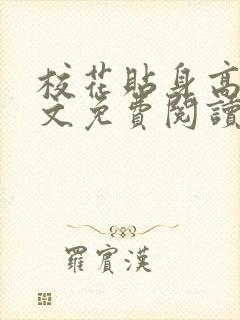 校花貼身高
文免費閱讀
羅賓漢